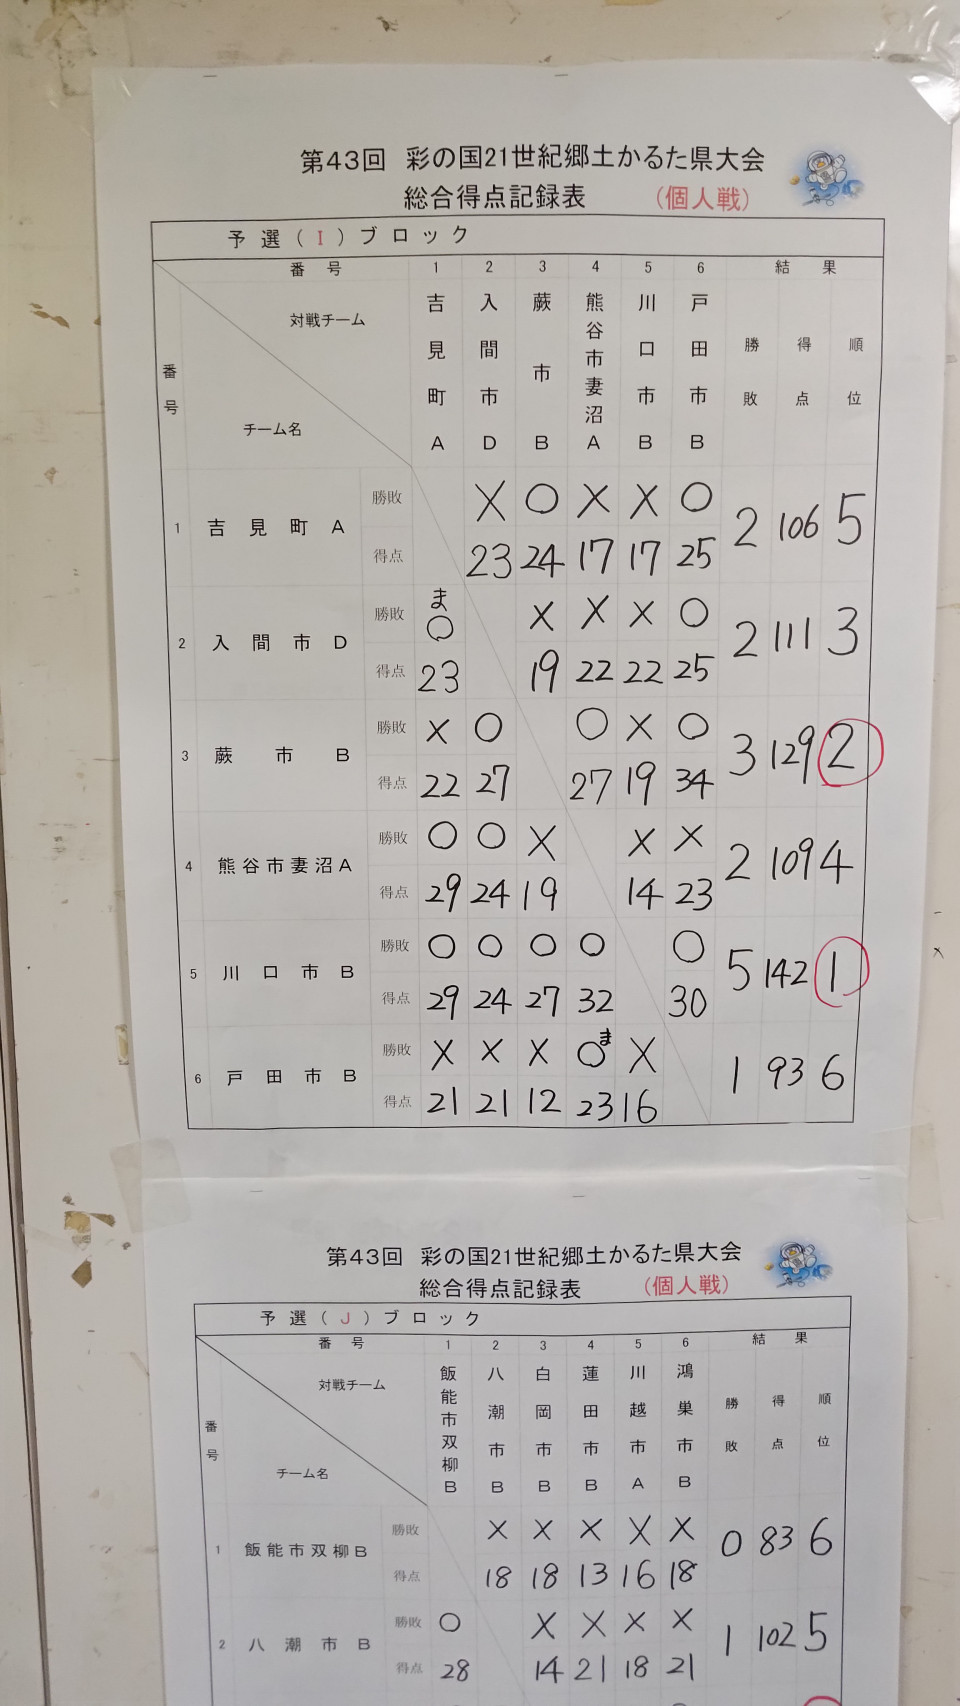 第43回 彩の国21世紀郷土かるた県大会
総合得点記録表 (個人戦)
予選(I)ブロック
番号 1 2 3 4 5 6 結果
対戦チーム 吉見町A 入間市D 蕨市B 熊谷市妻沼A 川口市B 戸田市B 勝敗 得点 順位
番号
チーム名
1 吉見町A 勝敗 X ○ X X ○ 2 106 5
得点 23 24 17 17 25
2 入間市D 勝敗 ま○ X X X ○ 2 111 3
得点 23 19 22 22 25
3 蕨市B 勝敗 X ○ ○ X ○ 3 129 2
得点 22 27 27 19 34
4 熊谷市妻沼A 勝敗 ○ ○ X X X 2 109 4
得点 29 24 19 14 23
5 川口市B 勝敗 ○ ○ ○ ○ ○ 5 142 1
得点 29 24 27 32 30
6 戸田市B 勝敗 X X X ○ま X 1 93 6
得点 21 21 12 23 16
第43回 彩の国21世紀郷土かるた県大会
総合得点記録表 (個人戦)
予選(J)ブロック
番号 1 2 3 4 5 6 結果
対戦チーム 飯能市双柳B 八潮市B 白岡市B 蓮田市B 川越市A 鴻巣市B 勝敗 得点 順位
番号
チーム名
1 飯能市双柳B 勝敗 X X X X X 0 83 6
得点 18 18 13 16 18
2 八潮市B 勝敗 ○ X X X X 1 102 5
得点 28 14 21 18 21